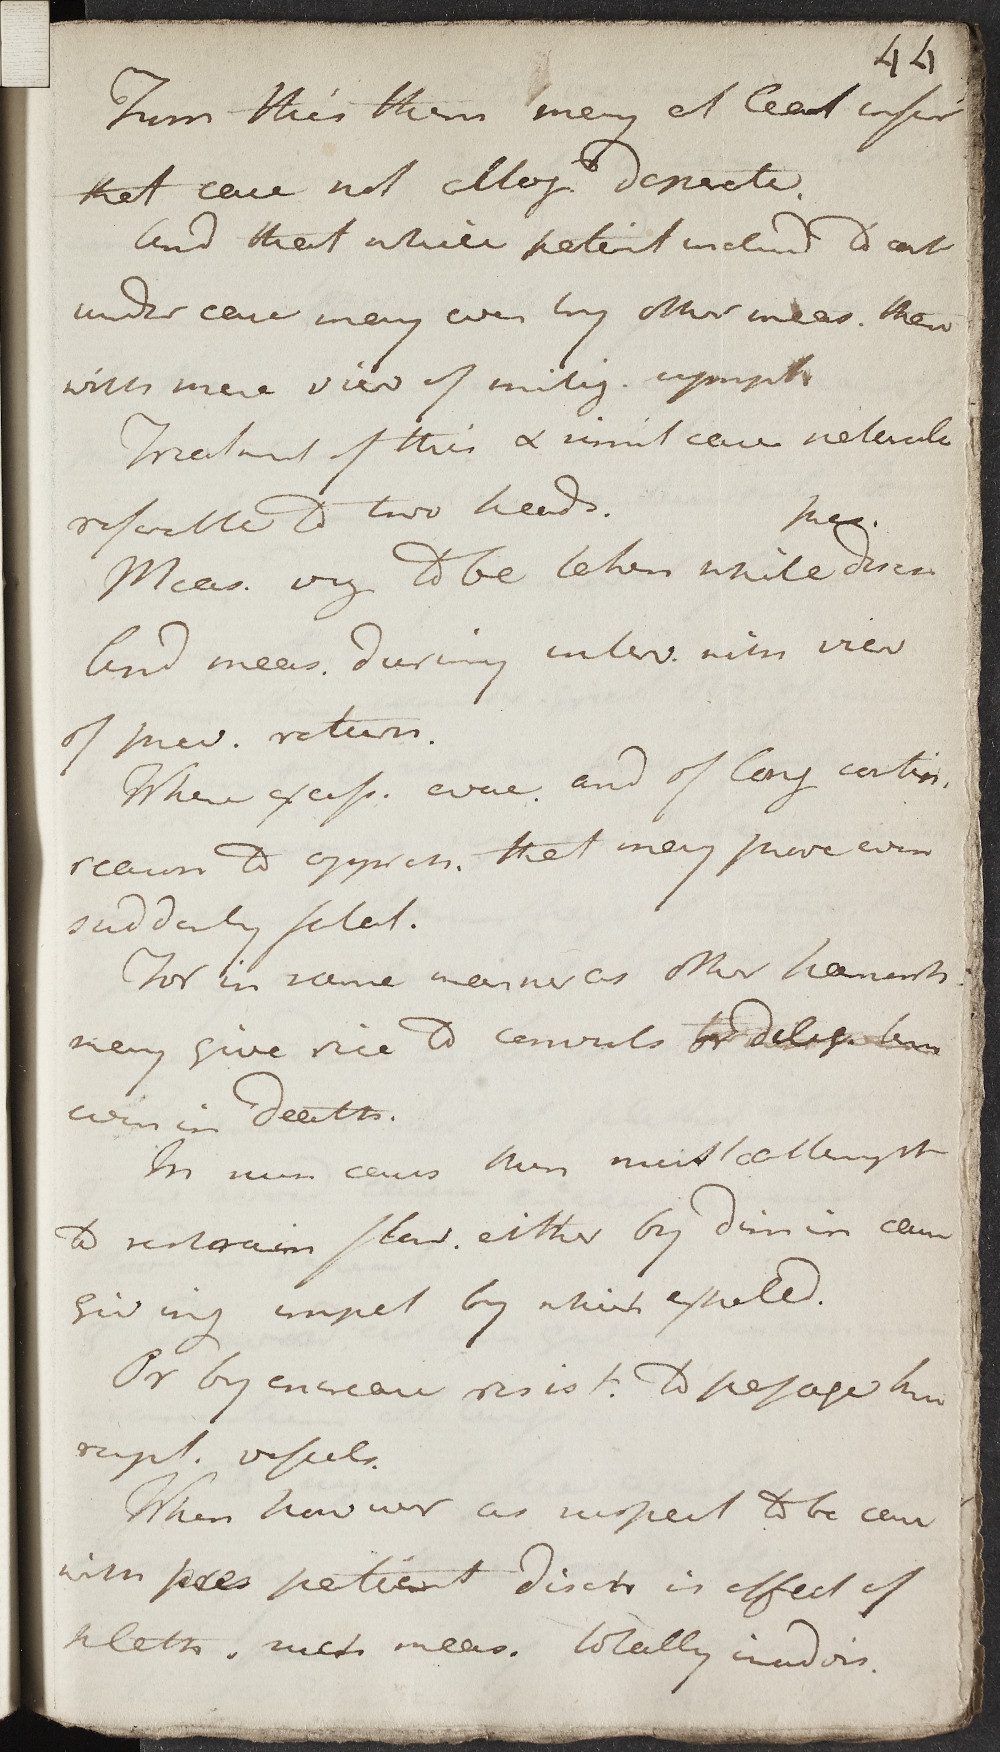 44
From this then may at least infer
that case not altog. desperate.
And that while patient inclind to ent
under case may even by other meas. than
with mere view of mitig. sympt
Treatment of this & simil cases
referable to two heads.
pres.
Meas. to be taken while disch
And meas. during interv. with view
of prev. return.
When excess. evac. and of long contin.
reason to appreh. that may prove even
suddenly fatal.
For in same manner as other haemorrh.
may give rise to convuls or
even in death.
In such cases then must attempt
to restrain flow. either by dimin cause
giving impet by which expeled.
Or by encrease resist. to passage from
rupt. vessels.
When however as suspect to be case
with pres patient disch is effect of
pleth. such meas. totally inadvis.